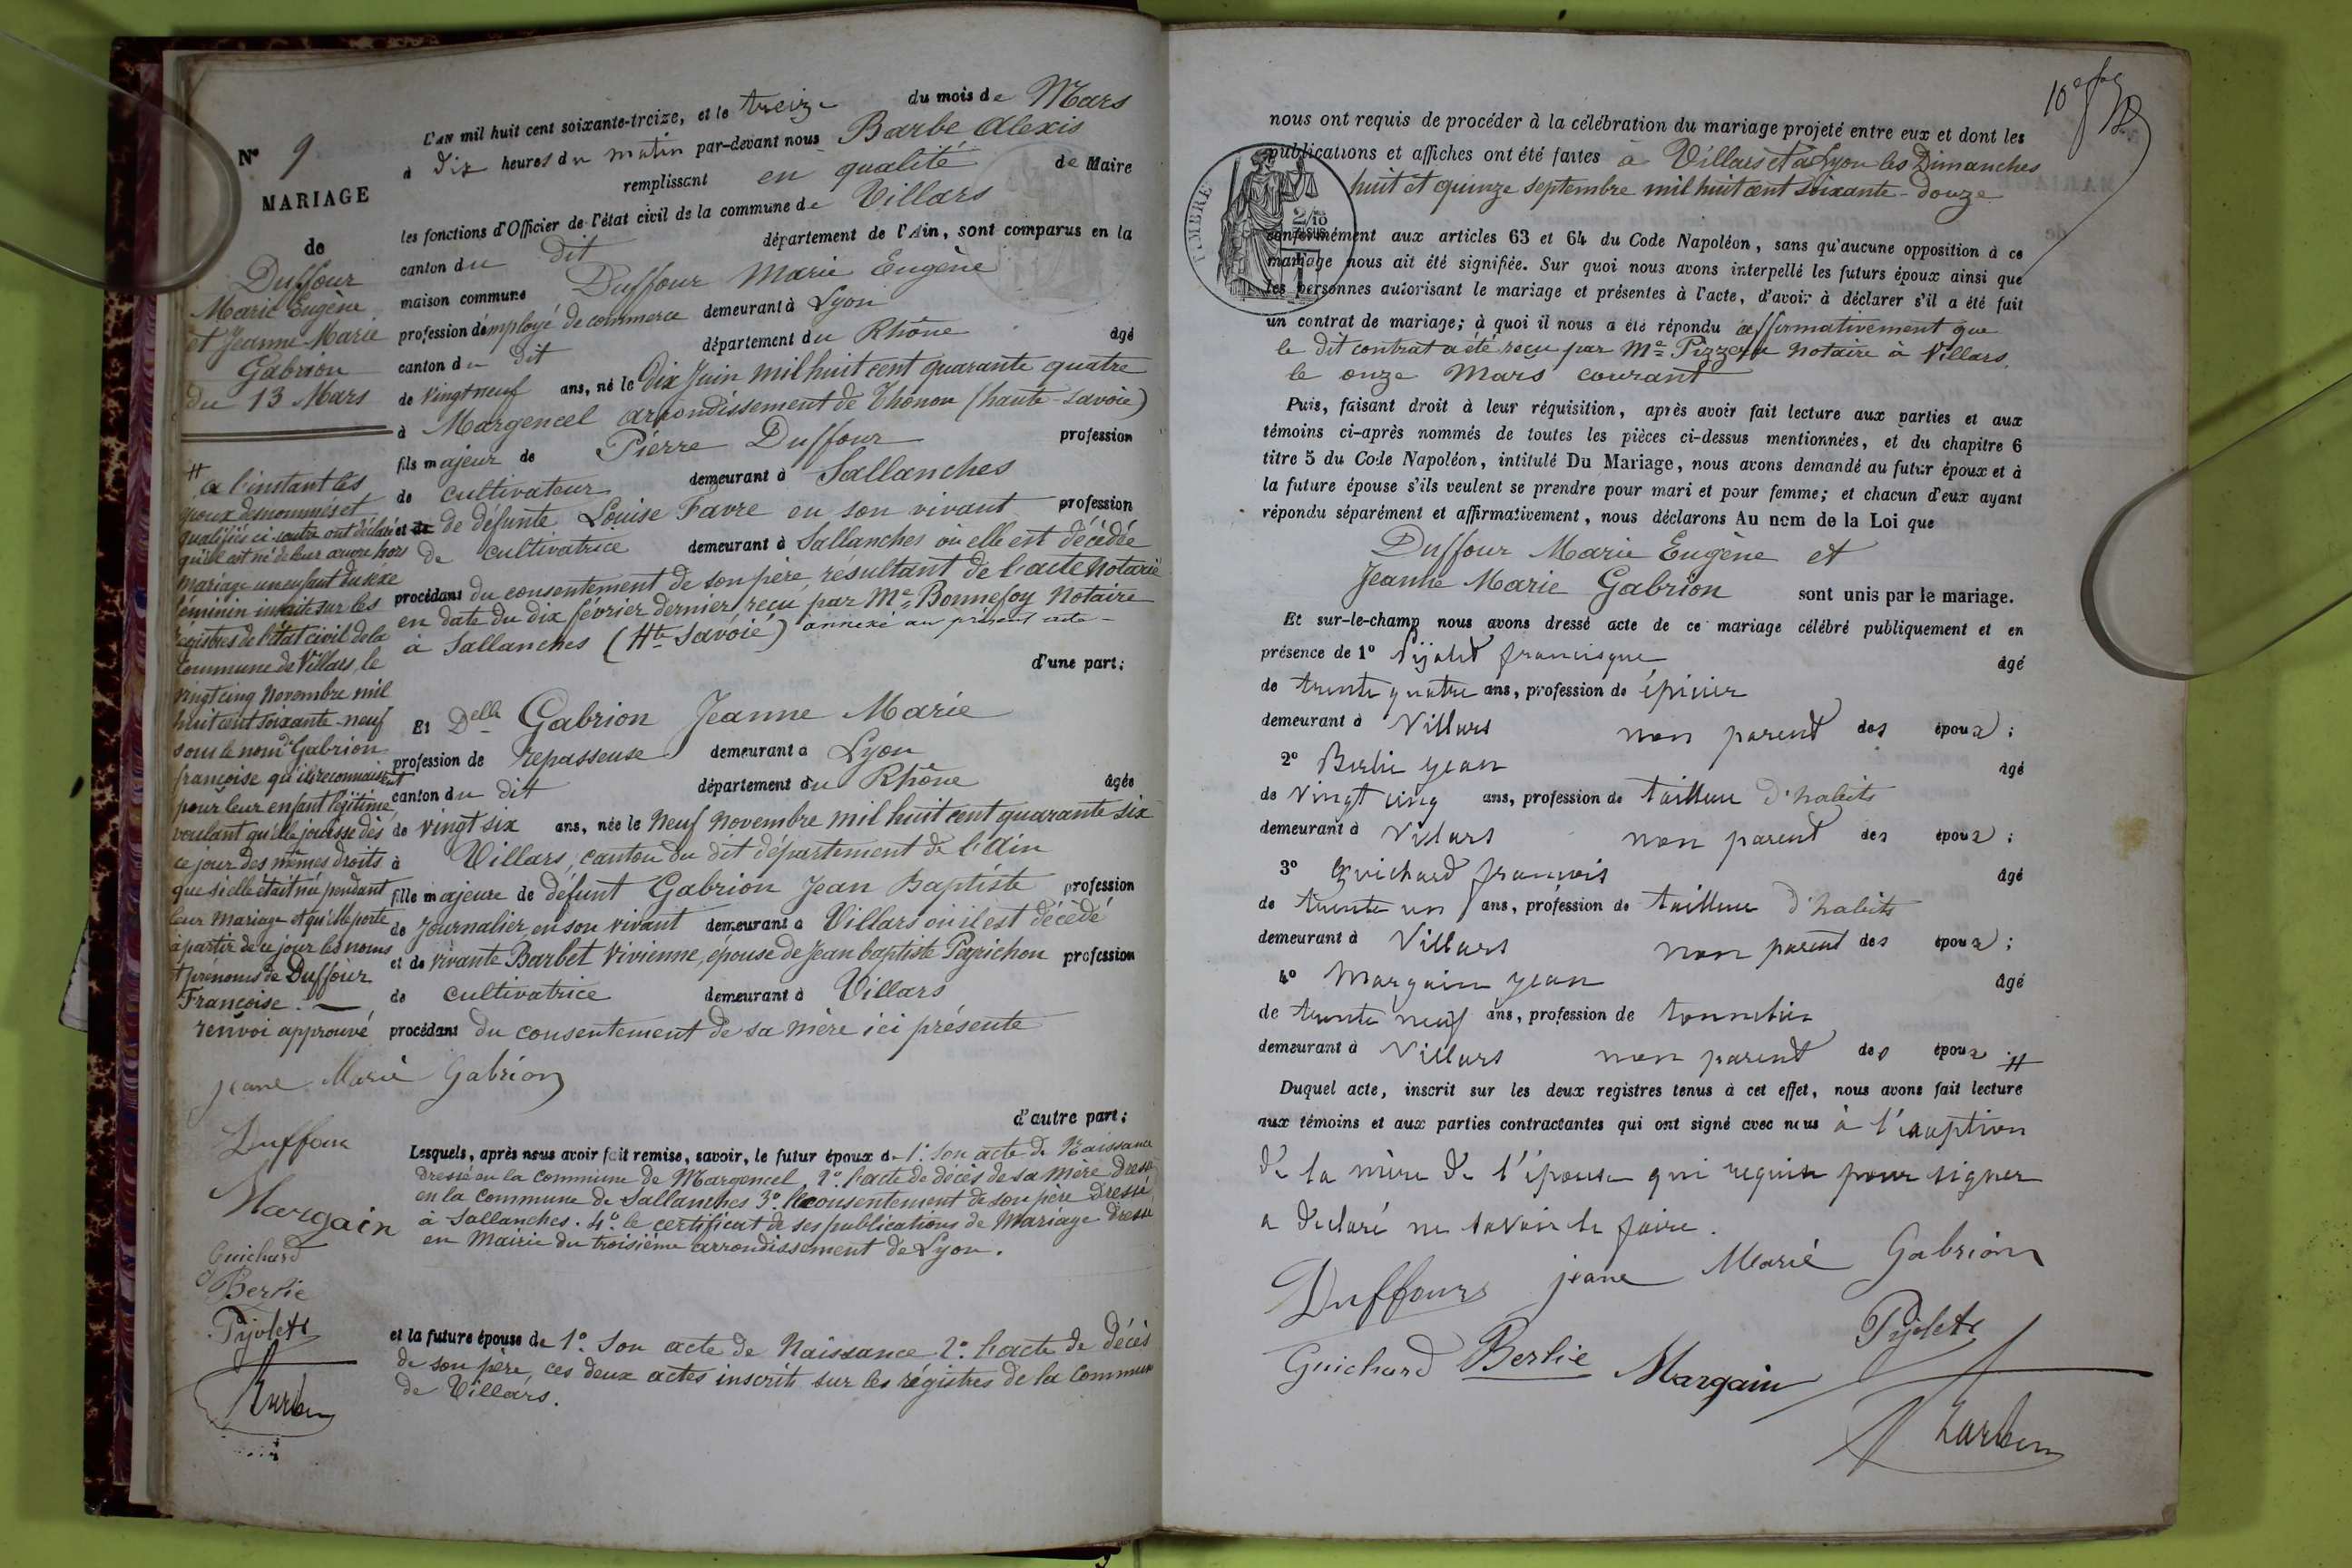 N° 9
MARIAGE
de
Duffour
Marie Eugène
et Jeanne-Marie
Gabrion
du 13 Mars
# à l'instant les
époux dénommés et
qualifiés ci-contre ont déclaré
qu'il est né de leur œuvre hors
Mariage un enfant du sexe
féminin inscrit sur les
registres de l'état civil de la
Commune de Villars, le
vingt cinq Novembre mil
huit cent soixante-neuf
sous le nom de Gabrion
françoise qu'ils reconnaissent
pour leur enfant légitime
voulant qu'elle jouisse dès
ce jour des mêmes droits
que si elle était née pendant
leur Mariage et qu'elle porte
à partir de ce jour les noms
et prénoms de Duffour
Françoise. —
renvoi approuvé
jeane Marie Gabrion
Duffour
Margain
Guichard
Berlie
Pijolet
L'AN mil huit cent soixante-treize, et le treize du mois de Mars
à dix heures du matin par-devant nous Barbe Alexis
remplissant en qualité de Maire
les fonctions d'Officier de l'état civil de la commune de Villars
canton du dit département de l'Ain, sont comparus en la
maison commune Duffour Marie Eugène
profession d'employé de commerce demeurant à Lyon
canton du dit département du Rhône âgé
de vingt neuf ans, né le Dix Juin mil huit cent quarante quatre
à Margencel arrondissement de Thonon (haute-Savoie)
fils majeur de Pierre Duffour profession
de cultivateur demeurant à Sallanches
et de de défunte Louise Favre en son vivant profession
de cultivatrice demeurant à Sallanches où elle est décédée
procédant du consentement de son père, resultant de l'acte Notarié
en date du dix février dernier, reçu par Me Bonnefoy Notaire
à Sallanches (Hte Savoie) annexé au présent acte -
d'une part;
Et Delle Gabrion Jeanne Marie
profession de repasseuse demeurant à Lyon
canton du dit département du Rhône âgée
de vingt six ans, née le Neuf Novembre mil huit cent quarante six
à Villars, canton du dit département de l'Ain
fille majeure de défunt Gabrion Jean Baptiste profession
de Journalier, en son vivant demeurant à Villars où il est décédé
et de vivante Barbet Vivienne, épouse de Jean baptiste Papichon profession
de cultivatrice demeurant à Villars
procédant du consentement de sa mère ici présente
d'autre part;
Lesquels, après nous avoir fait remise, savoir, le futur époux de 1° Son acte de Naissance
dressé en la Commune de Margencel, 2° l'acte de décès de sa Mère dressé
en la Commune de Sallanches 3° le consentement de son père dressé
à Sallanches. 4° le certificat de ses publications de Mariage dressé
en Mairie du troisième arrondissement de Lyon.
et la future épouse de 1° Son acte de Naissance 2° l'acte de décès
de son père, ces deux actes inscrits sur les régistres de la Commune
de Villars.
nous ont requis de procéder à la célébration du mariage projeté entre eux et dont les
publications et affiches ont été faites à Villars et à Lyon les Dimanches
huit et quinze septembre mil huit cent soixante-douze
TIMBRE
conformément aux articles 63 et 64 du Code Napoléon, sans qu'aucune opposition à ce
mariage nous ait été signifiée. Sur quoi nous avons interpellé les futurs époux ainsi que
les personnes autorisant le mariage et présentes à l'acte, d'avoir à déclarer s'il a été fait
un contrat de mariage; à quoi il nous a été répondu affirmativement que
le dit contrat a été reçu par Me Notaire à Villars,
le onze Mars courant
Puis, faisant droit à leur réquisition, après avoir fait lecture aux parties et aux
témoins ci-après nommés de toutes les pièces ci-dessus mentionnées, et du chapitre 6
titre 5 du Code Napoléon, intitulé Du Mariage, nous avons demandé au futur époux et à
la future épouse s'ils veulent se prendre pour mari et pour femme; et chacun d'eux ayant
répondu séparément et affirmativement, nous déclarons Au nom de la Loi que
Duffour Marie Eugène et
Jeanne Marie Gabrion sont unis par le mariage.
Et sur-le-champ nous avons dressé acte de ce mariage célébré publiquement et en
présence de 1° Pijolet francisque âgé
de trente quatre ans, profession de épicier
demeurant à Villars non parent des époux;
2° Berlie Jean âgé
de vingt cinq ans, profession de tailleur d'habits
demeurant à Villars non parent des époux;
3° Guichard françois âgé
de trente un ans, profession de tailleur d'habits
demeurant à Villars non parent des époux;
4° Margain Jean âgé
de trente neuf ans, profession de tonnelier
demeurant à Villars non parent des époux. #
Duquel acte, inscrit sur les deux registres tenus à cet effet, nous avons fait lecture
aux témoins et aux parties contractantes qui ont signé avec nous à l'exception
de la mère de l'épouse qui requise pour signer
a déclaré ne savoir le faire.
Duffour jeane Marie Gabrion
Guichard Berlie Margain Pijolet